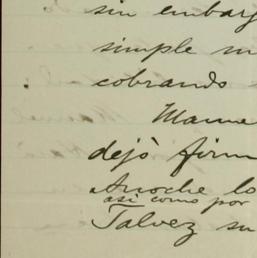 sin embarg
simple su
cobrando
Manue
dejó firm
Anoche lo
así como por
Talvez su